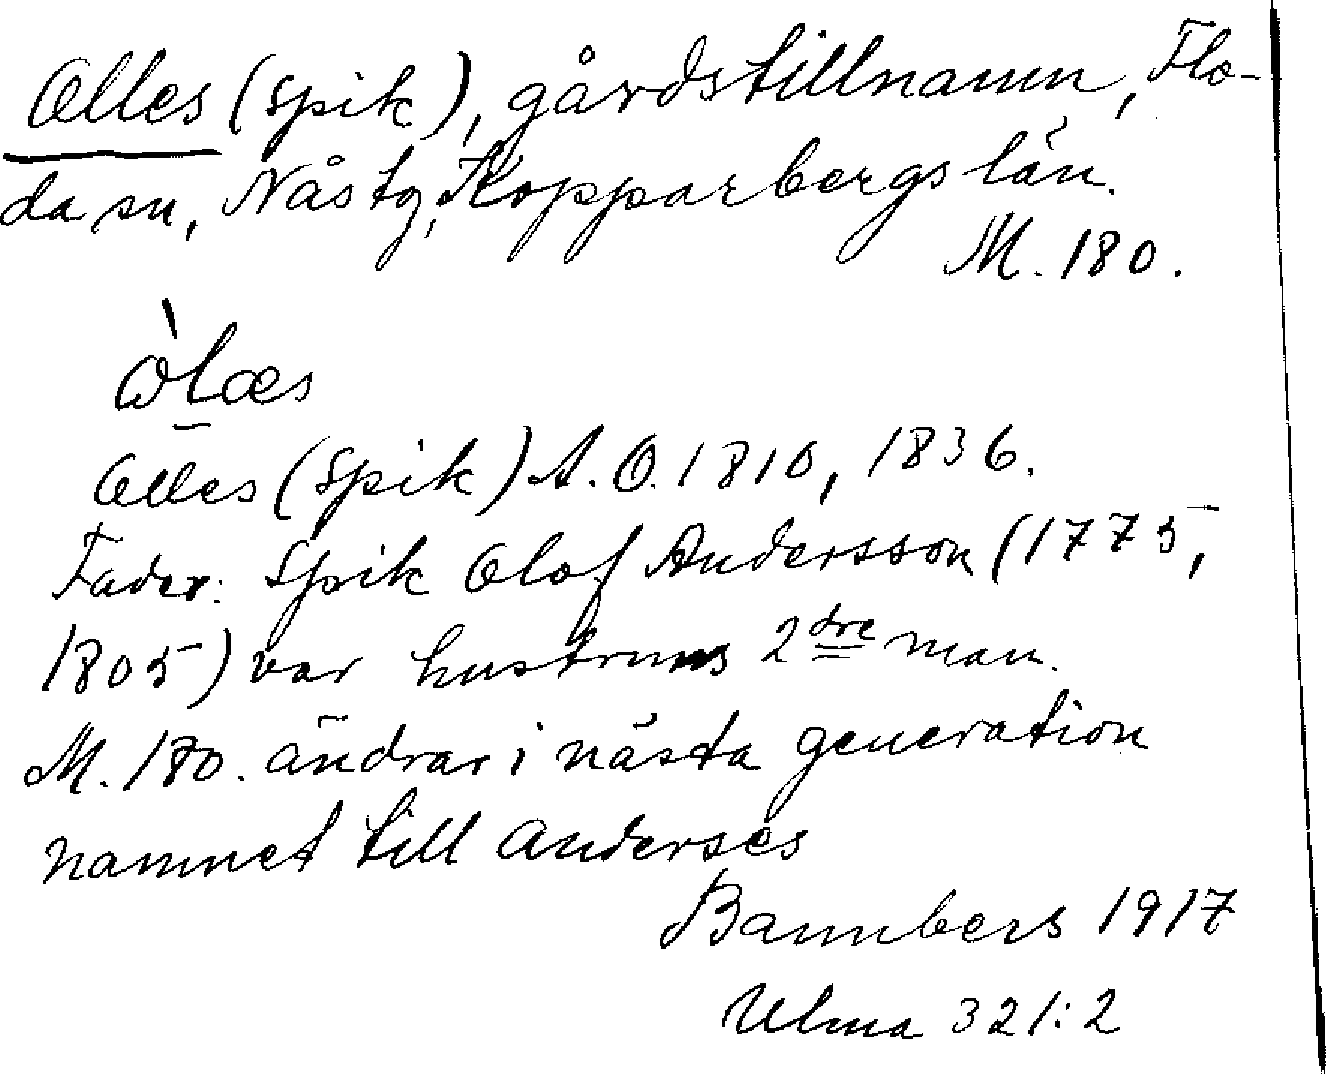 Olles (Spik), gårdstillnamn, Flo-
da sn, Nås tg, Kopparbergs län.
M. 180.
ὼlæs
Olles (Spik) A.O. 1810, 1836.
Fader: Spik Olof Andersson (1775,
1805) var hustruns 2dre man.
M. 180. ändrar i nästa generation
namnet till Anderses
Bannbers 1917
Ulma 321:2